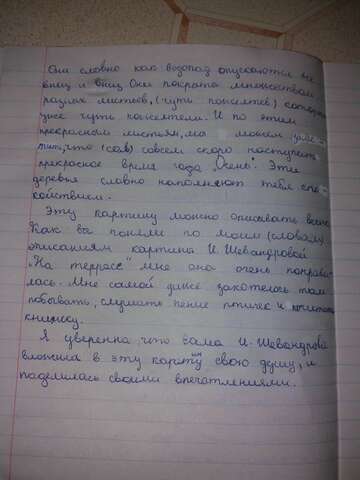 Они словно как водопад опускаются всё
вниз и вниз Они пократа множеством
разнах листьев, (чуть пожелтев)
уже чуть пожелтела. И по этим
прекрасным листьям, мы можем заме-
тить, что (сов) совсем скоро наступить
прекрасное время года "Осень". Эти
деревья словно наполняют тебя спо-
койствием.
Эту картину можно описывать вечно
Как ва поняли по моим (словам)
описаниям картина И. Шевандровой
"На террасе" мне она очень понрави-
лась. Мне самой даже захотелось там
побывать, слушать пение птичек и почитать
книжку.
Я уверенна что сама И. Шевандрова
вложила в эту картину свою душу, и
поделилась своими впечатлениями.